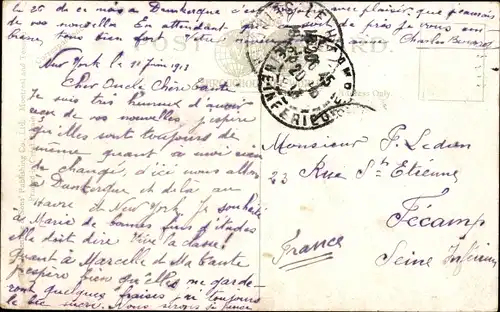 le 25 de ce mois à Dunkerque c'est avec plaisir que
de vos nouvelles En attendant de près je vous
tous bien fort Votre Charles Bernard
POST CARD.
New York le 11 juin 1913
Cher Oncle Chère Tante
Je suis très heureux d'avoir
eu de vos nouvelles j'espère
qu'elles sont toujours de
même quant à moi rien
de changé, d'ici nous allons
à Dunkerque et de là au
Havre et New York je souhaite
à Marie de bonnes fins d'études
Elle doit dire Vive la classe!
Quant à Marcelle et Ma Tante
j'espère bien qu'elles me garde-
ront quelques fraises ai toujours
le bec sucré. Nous serons
LE HAVRE
Address Only.
Monsieur F. Ledun
23 Rue St Etienne
Fécamp
Seine Inférieure
France
Publishing Co., Ltd., Montreal and Toronto